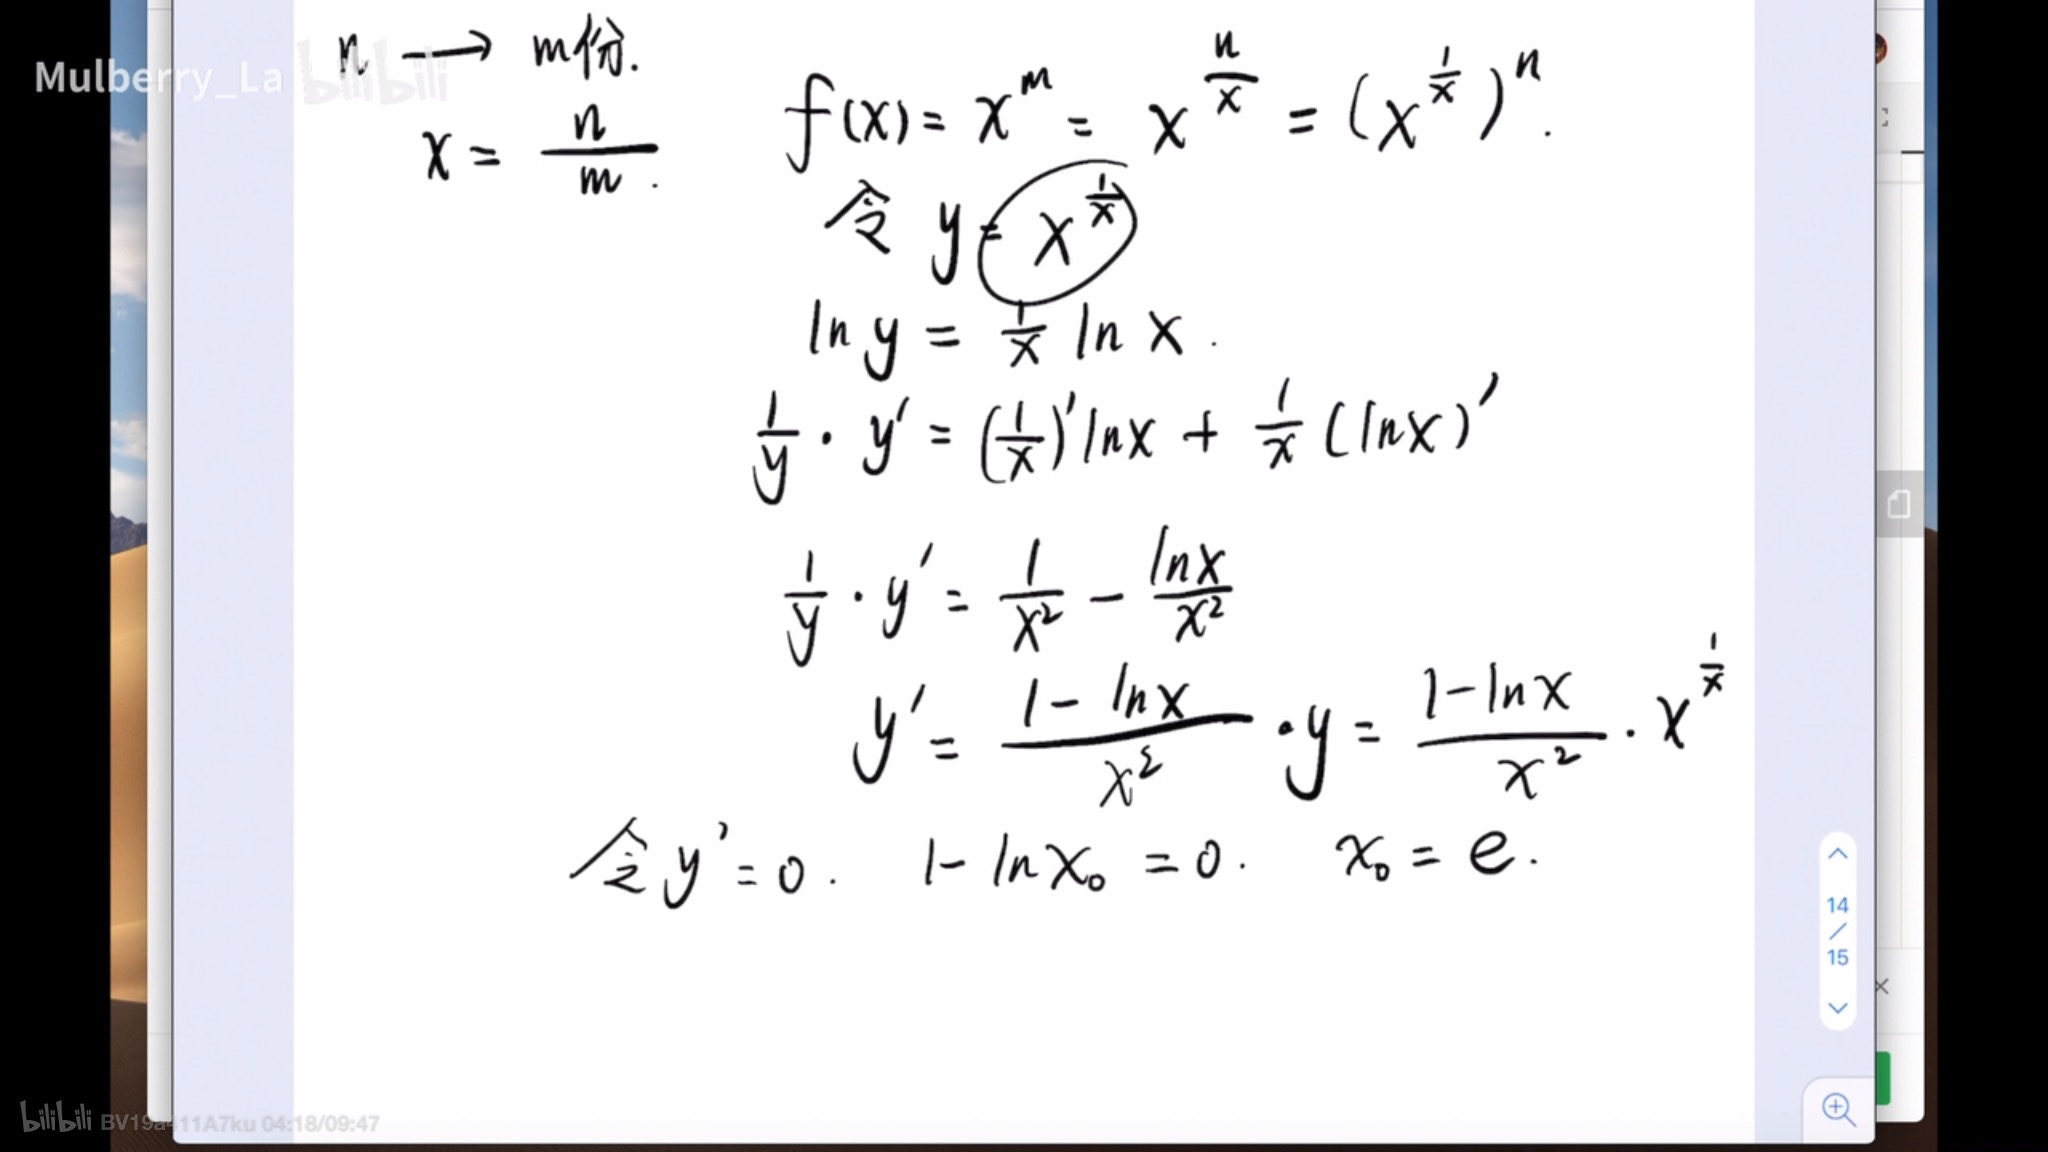 Mulberry_La bilibili
n → m份.
x = n/m.
f(x) = x^m = x^(n/x) = (x^(1/x))^n.
令 y = x^(1/x)
ln y = 1/x ln x.
1/y · y' = (1/x)' lnx + 1/x (lnx)'
1/y · y' = 1/x² - lnx/x²
y' = (1 - lnx)/x² · y = (1-lnx)/x² · x^(1/x)
令 y' = 0. 1 - lnx₀ = 0. x₀ = e.
14
/
15
bilibili BV19a411A7ku 04:18/09:47